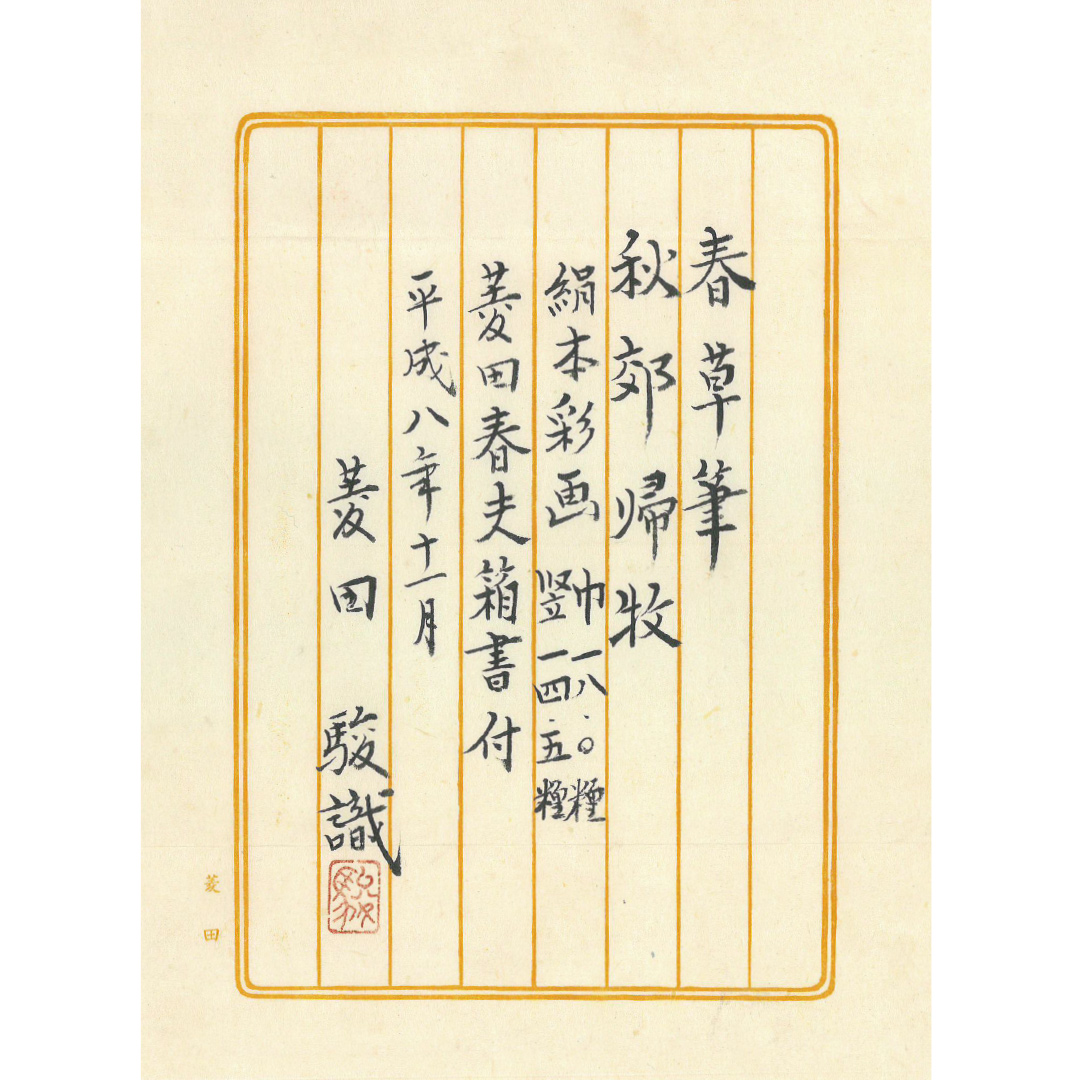 春草筆
秋郊帰牧
絹本彩画 巾一八.〇糎
竪一四.五糎
菱田春夫箱書付
平成八年十一月
菱田 駿識
菱田